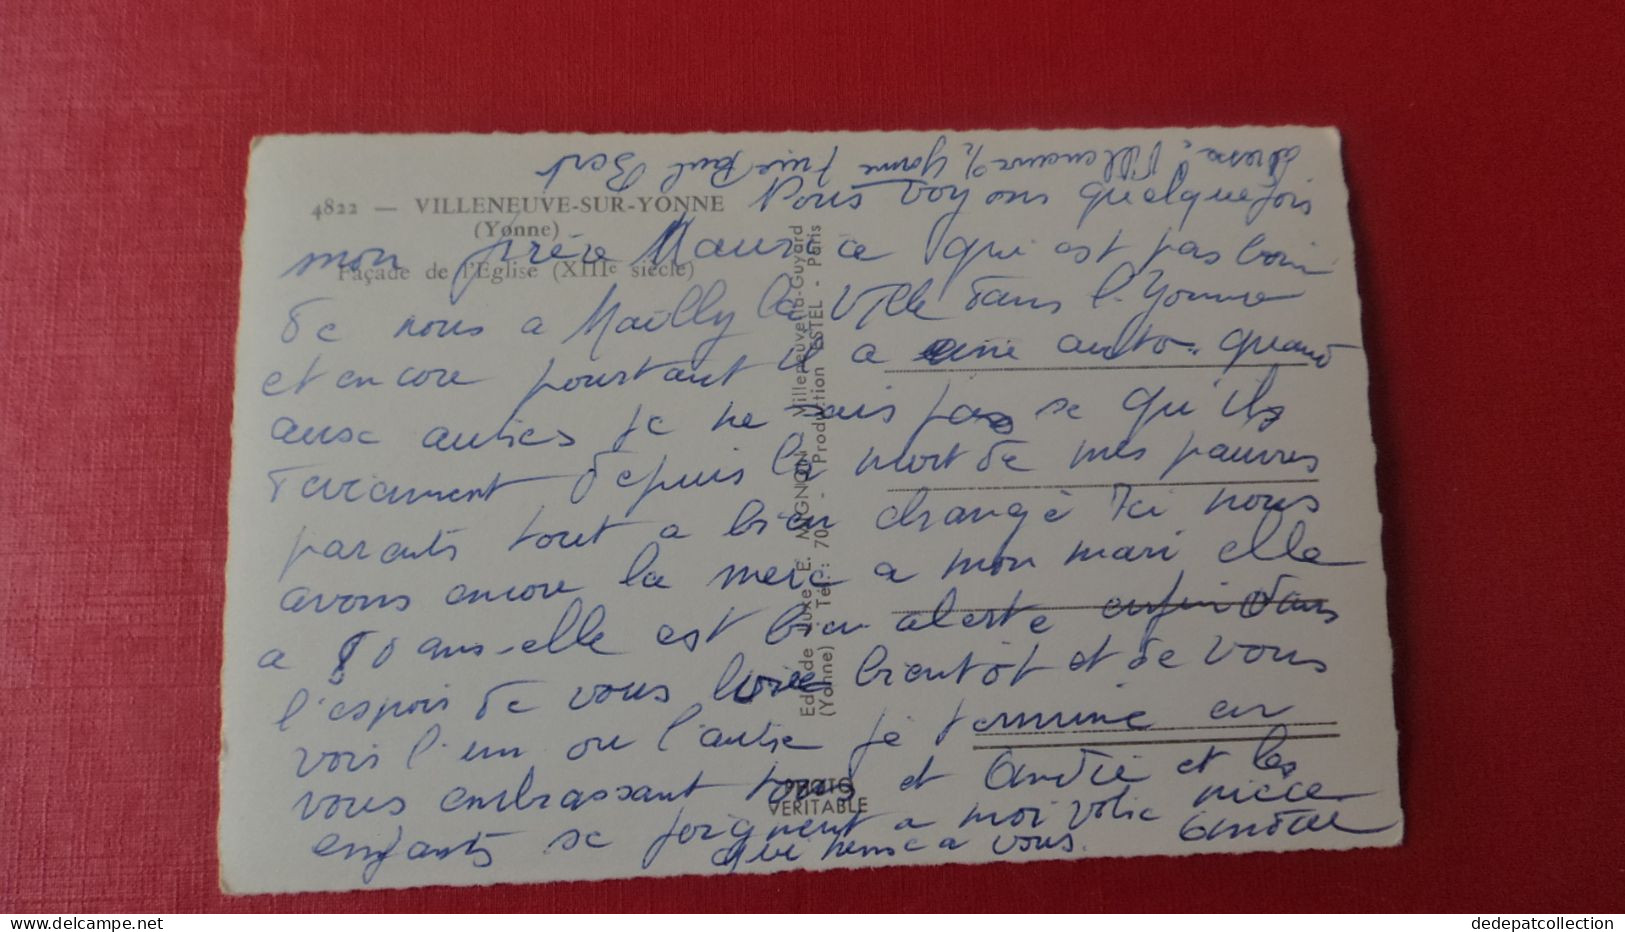 adresse : Villeneuve s/ Yonne 7 rue Paul Bert
4822 — VILLENEUVE-SUR-YONNE
(Yonne)
Façade de l'Église (XIIIe siècle)
Nous voyons quelquefois
mon frère Maurice qui est pas loin
de nous a Mailly la Ville dans l'Yonne
et encore pourtant il a une auto. quand
aux autres je ne sais pas se qu'ils
devienment depuis la mort de mes pauvres
parents tout a bien changé Ici nous
avons encore la mere a mon mari elle
a 80 ans. elle est bien alerte enfin dans
l'espoir de vous lire bientôt et de vous
voir l'un ou l'autre je termine en
vous embrassant tous et André et les
enfants se joignent a moi votre niece
qui pense a vous. Andrée
Edité de Luxe E. MIGNON - Villeneuve-la-Guyard
(Yonne) - Tél. : 70 - Production ESTEL - Paris
PHOTO
VÉRITABLE
dedepatcollection